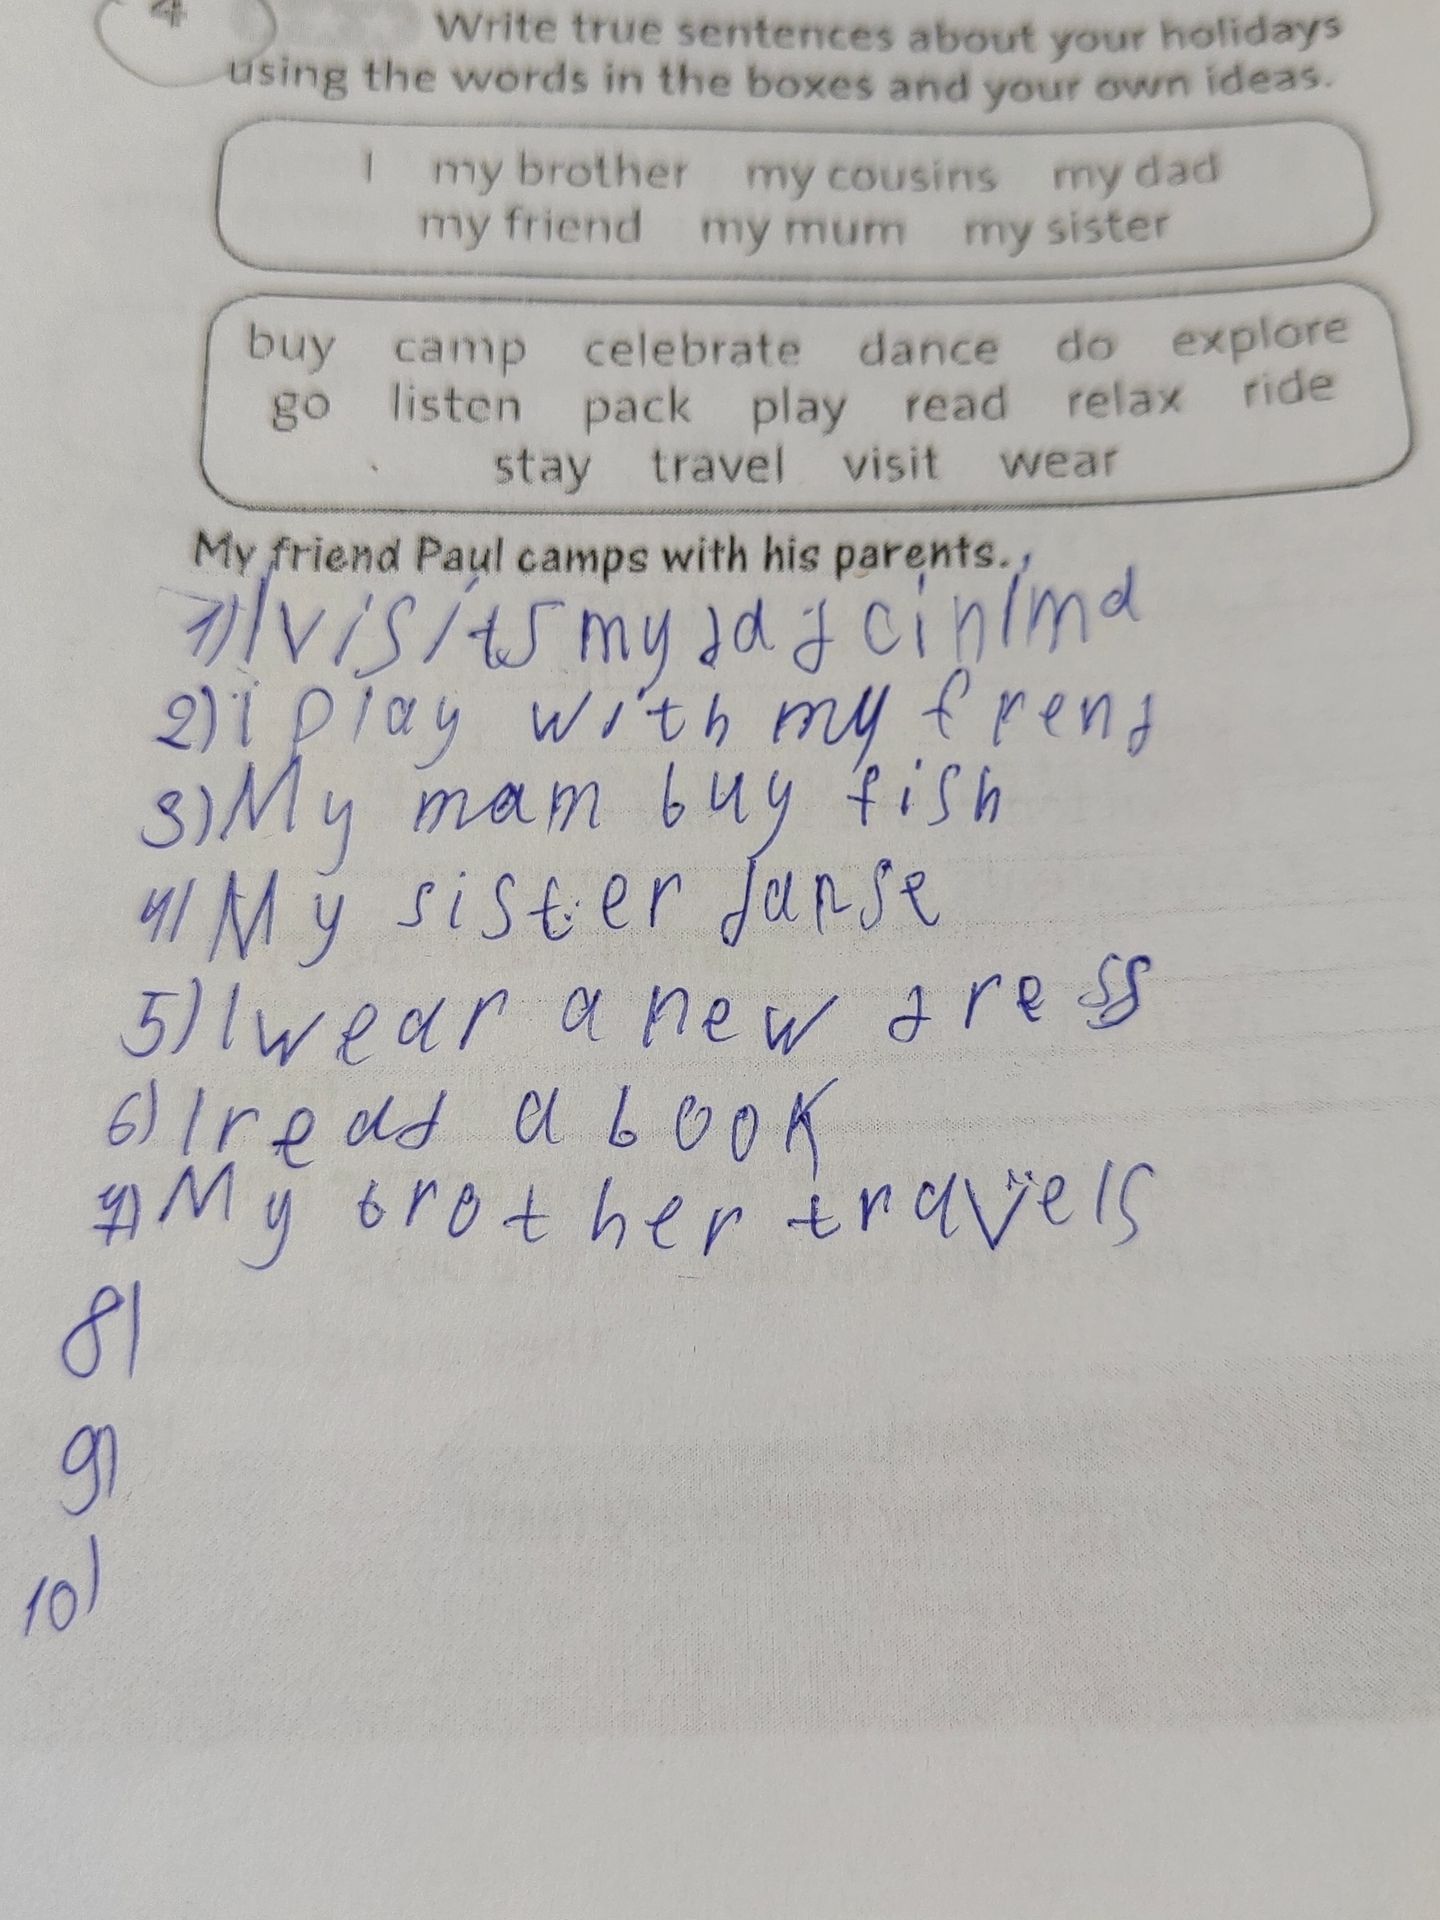 4 Write true sentences about your holidays
using the words in the boxes and your own ideas.
I my brother my cousins my dad
my friend my mum my sister
buy camp celebrate dance do explore
go listen pack play read relax ride
stay travel visit wear
My friend Paul camps with his parents.
1) I visits my dad cinima
2) i play with my frend
3) My mam buy fish
4) My sister danse
5) I wear a new dress
6) I read a book
7) My brother travels
8)
9)
10)